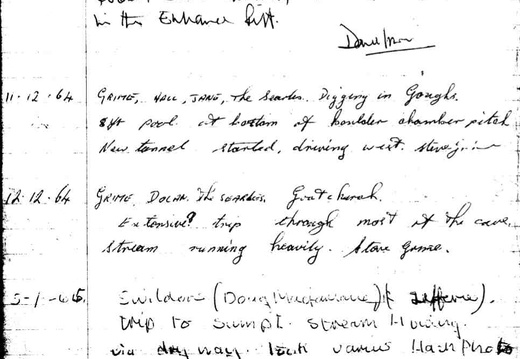 in the Entrance Rift.
11-12-64 GRIME, HALL, JANE, The Searles. Digging in Goughs.
8ft pool at bottom of boulder chamber pitch
New tunnel started, driving west.
12-12-64 GRIME, DOLAN. The SEARLES. Goatchurch.
Extensive? trip through most of the cave.
Stream running heavily. Steve Grime.
5-1-65. Swildons (Doug
trip to Sump 1. Stream
via dry way. Took various Flash Photo